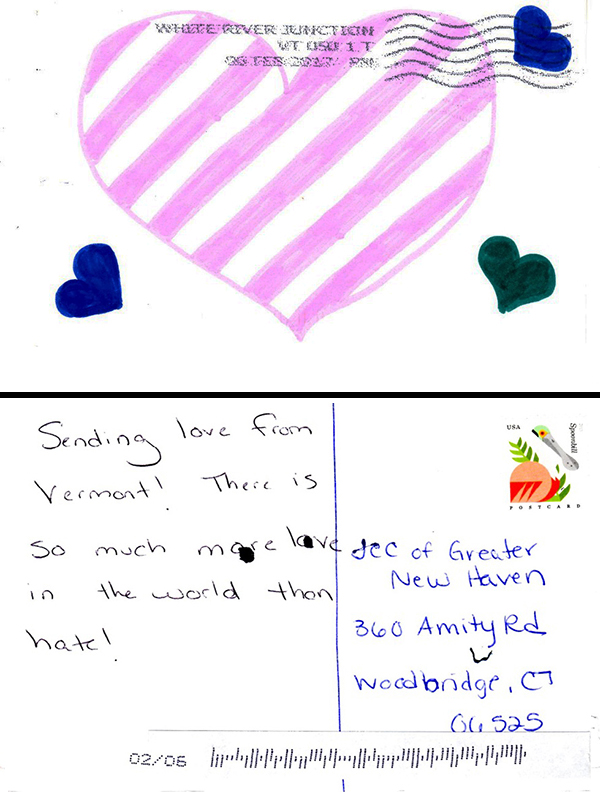 WHITE RIVER JUNCTION
VT 050 1 T
06 FEB 2017 PM
Sending love from
Vermont! There is
so much more love
in the world than
hate!
USA
Spoonbill
POSTCARD
JCC of Greater
New Haven
360 Amity Rd
Woodbridge, CT
06525
02/06